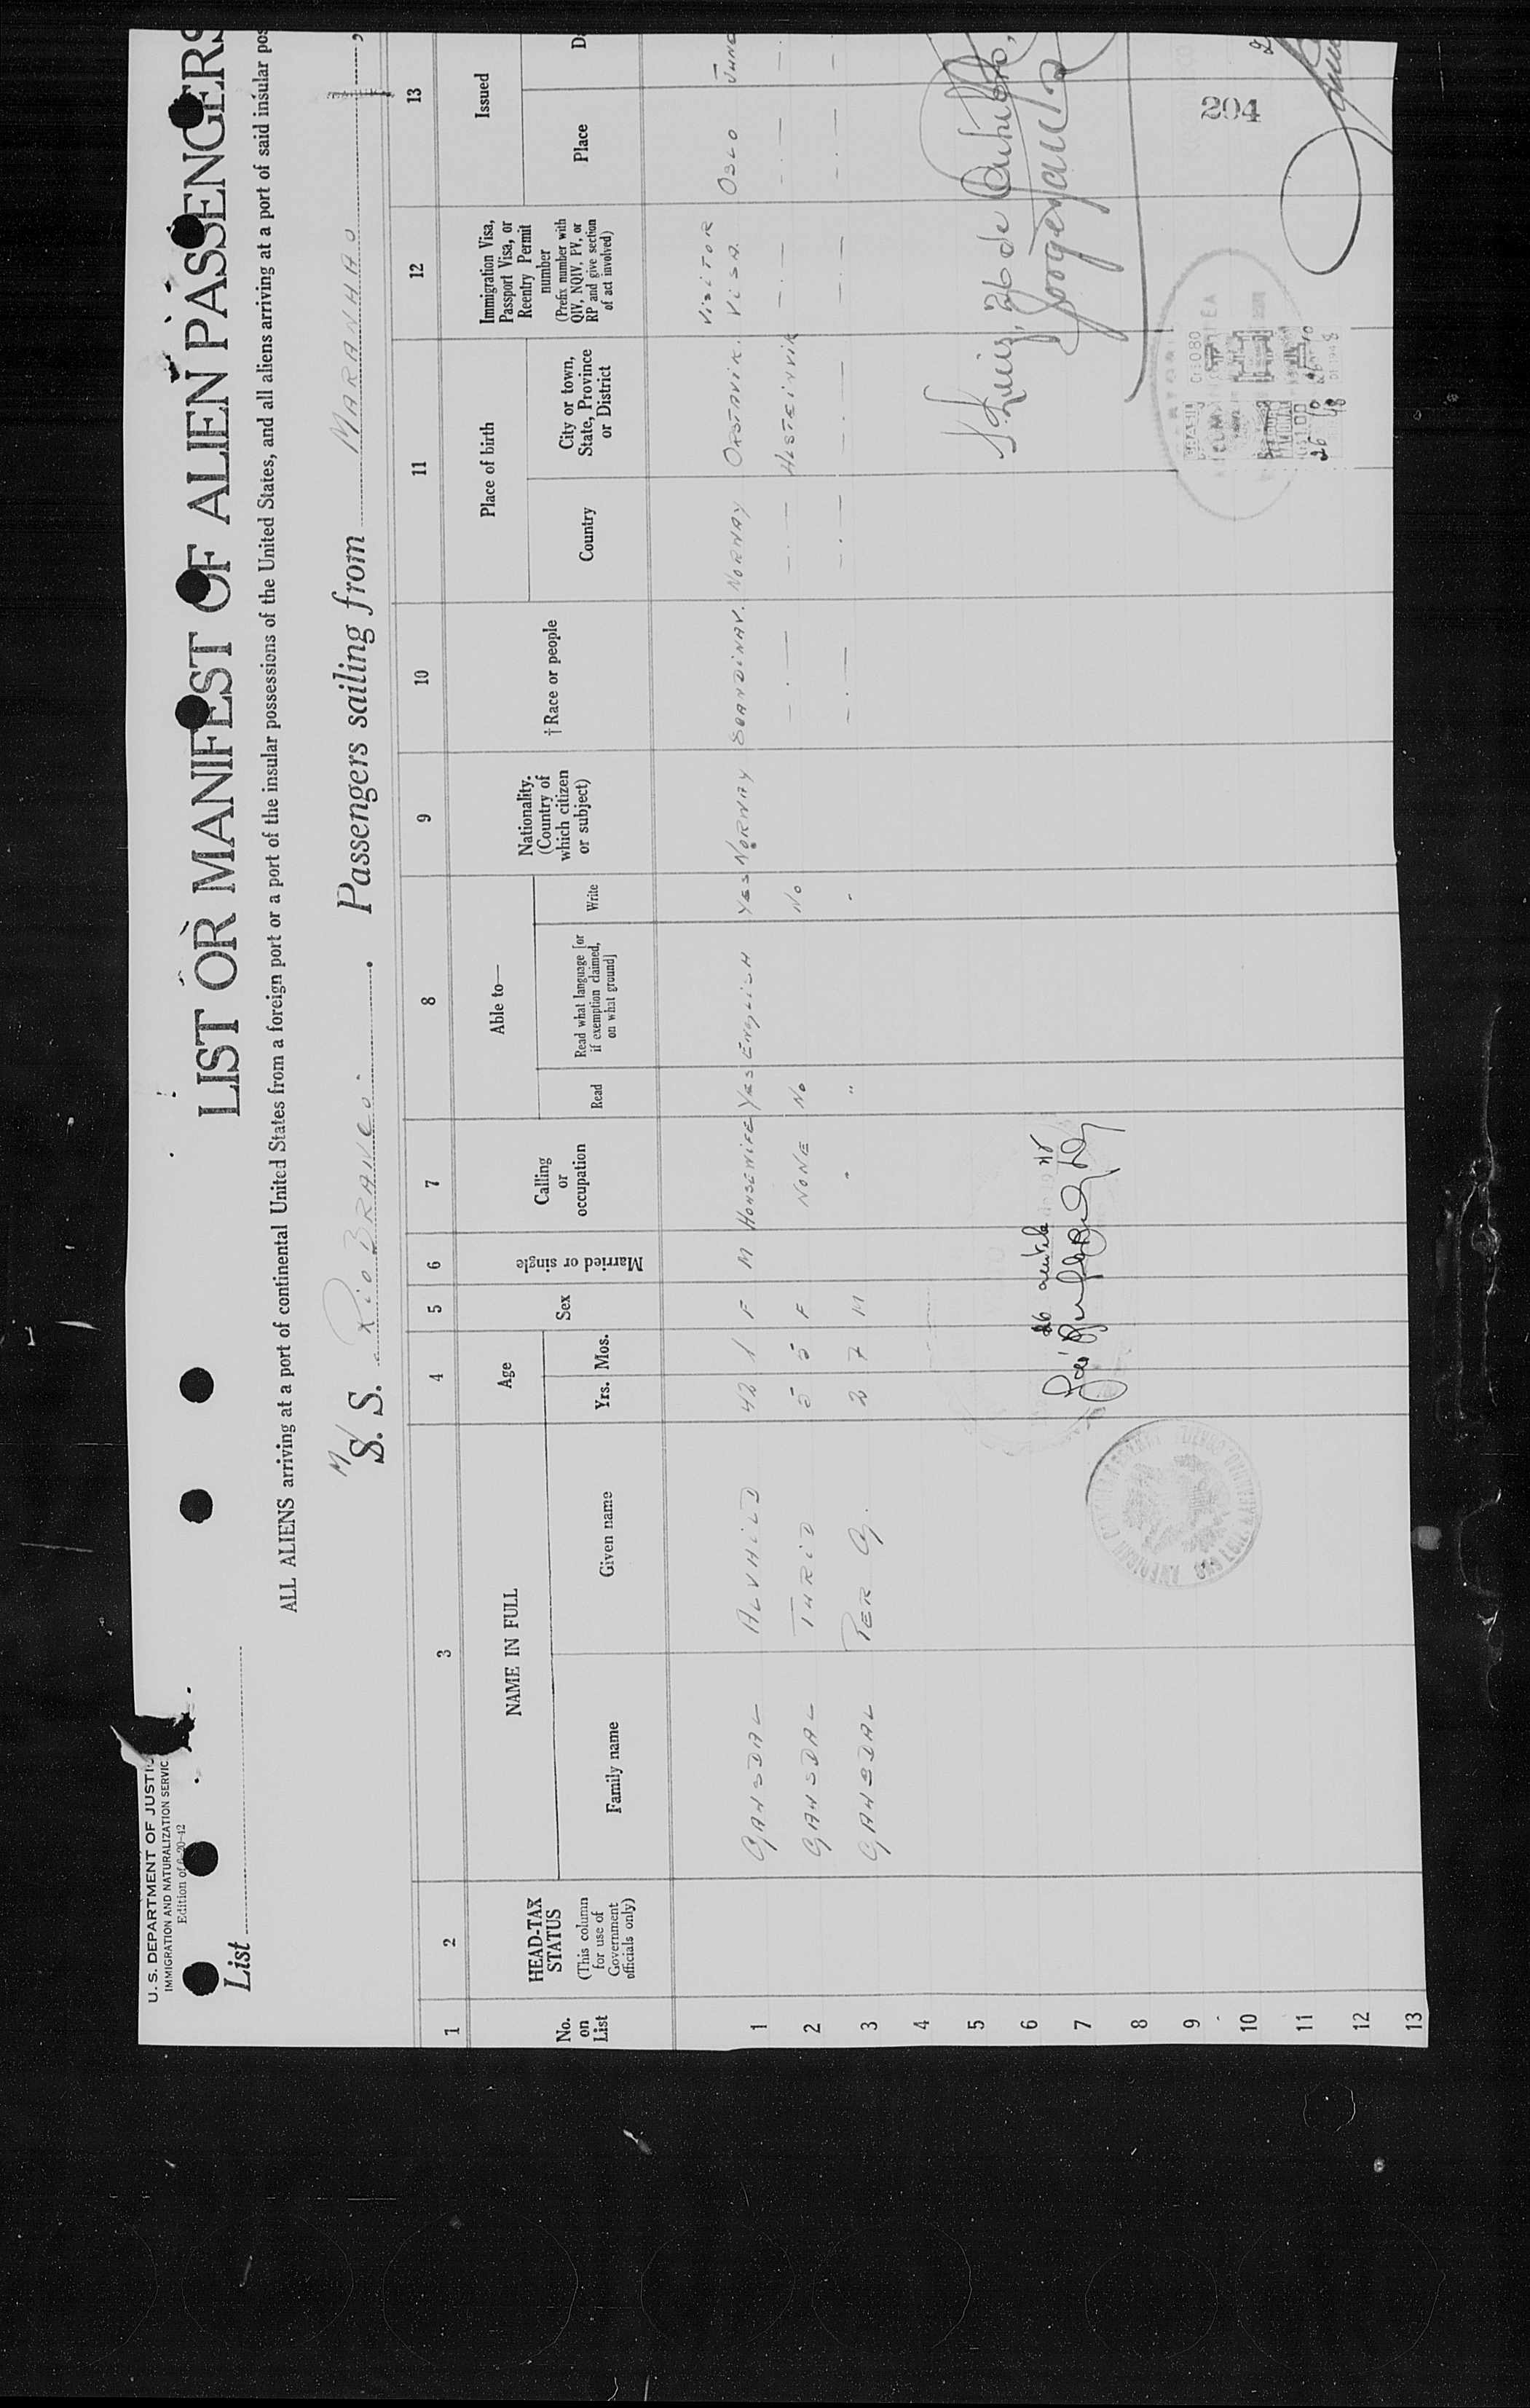 U. S. DEPARTMENT OF JUSTIC
IMMIGRATION AND NATURALIZATION SERVIC
Edition of 6-20-42
List
LIST OR MANIFEST OF ALIEN PASSENGERS
ALL ALIENS arriving at a port of continental United States from a foreign port or a part of the insular possessions of the United States, and all aliens arriving at a port of said insular pos
M/ S. S. RIO BRANCO. Passengers sailing from MARANHAO ,
1 2 3 4 5 6 7 8 9 10 11 12 13
No. on List
HEAD-TAX STATUS
(This column for use of Government officials only)
NAME IN FULL
Family name
Given name
Age
Yrs. Mos.
Sex
Married or single
Calling or occupation
Able to—
Read
Read what language [or if exemption claimed, on what ground]
Write
Nationality. (Country of which citizen or subject)
† Race or people
Place of birth
Country
City or town, State, Province or District
Immigration Visa, Passport Visa, or Reentry Permit number
(Prefix number with QIV, NQIV, PV, or RP and give section of act involved)
Issued
Place
D
1 GAUSDAL ALVHILD 42 1 F M HOUSEWIFE YES ENGLISH YES NORWAY SCANDINAV. NORWAY ORSTAVIK. VISITOR VISA. OSLO JUNE
2 GAUSDAL TURID 5 5 F NONE No No —.— —.— HESTEINVIK —.— —.— —.
3 GAUSDAL PER G. 2 7 M " " " —.— —.— —.— —.— —.— —.
4
5
6
7
8
9
10
11
12
13
S. Luis, 26 de Outubro,
26
204
BRASIL
26 10 48